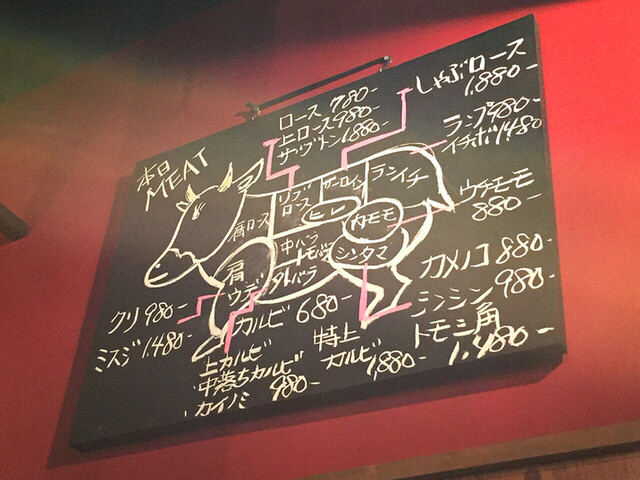 本日
MEAT
ロース 780-
上ロース 980-
ザブトン 1,880-
しゃぶロース
1,880-
ランプ 980-
イチボ 1,480
ウチモモ
880-
カメノコ 880-
シンシン 980-
トモ三角
1,480-
リブ
ロース
サーロイン
ランイチ
肩ロース
ヒレ
内モモ
中バラ
トモバラ
シンタマ
肩
ウデ
外バラ
クリ 980-
ミスジ 1,480-
カルビ 680-
上カルビ
中落ちカルビ
カイノミ 980-
特上
カルビ 1,880-